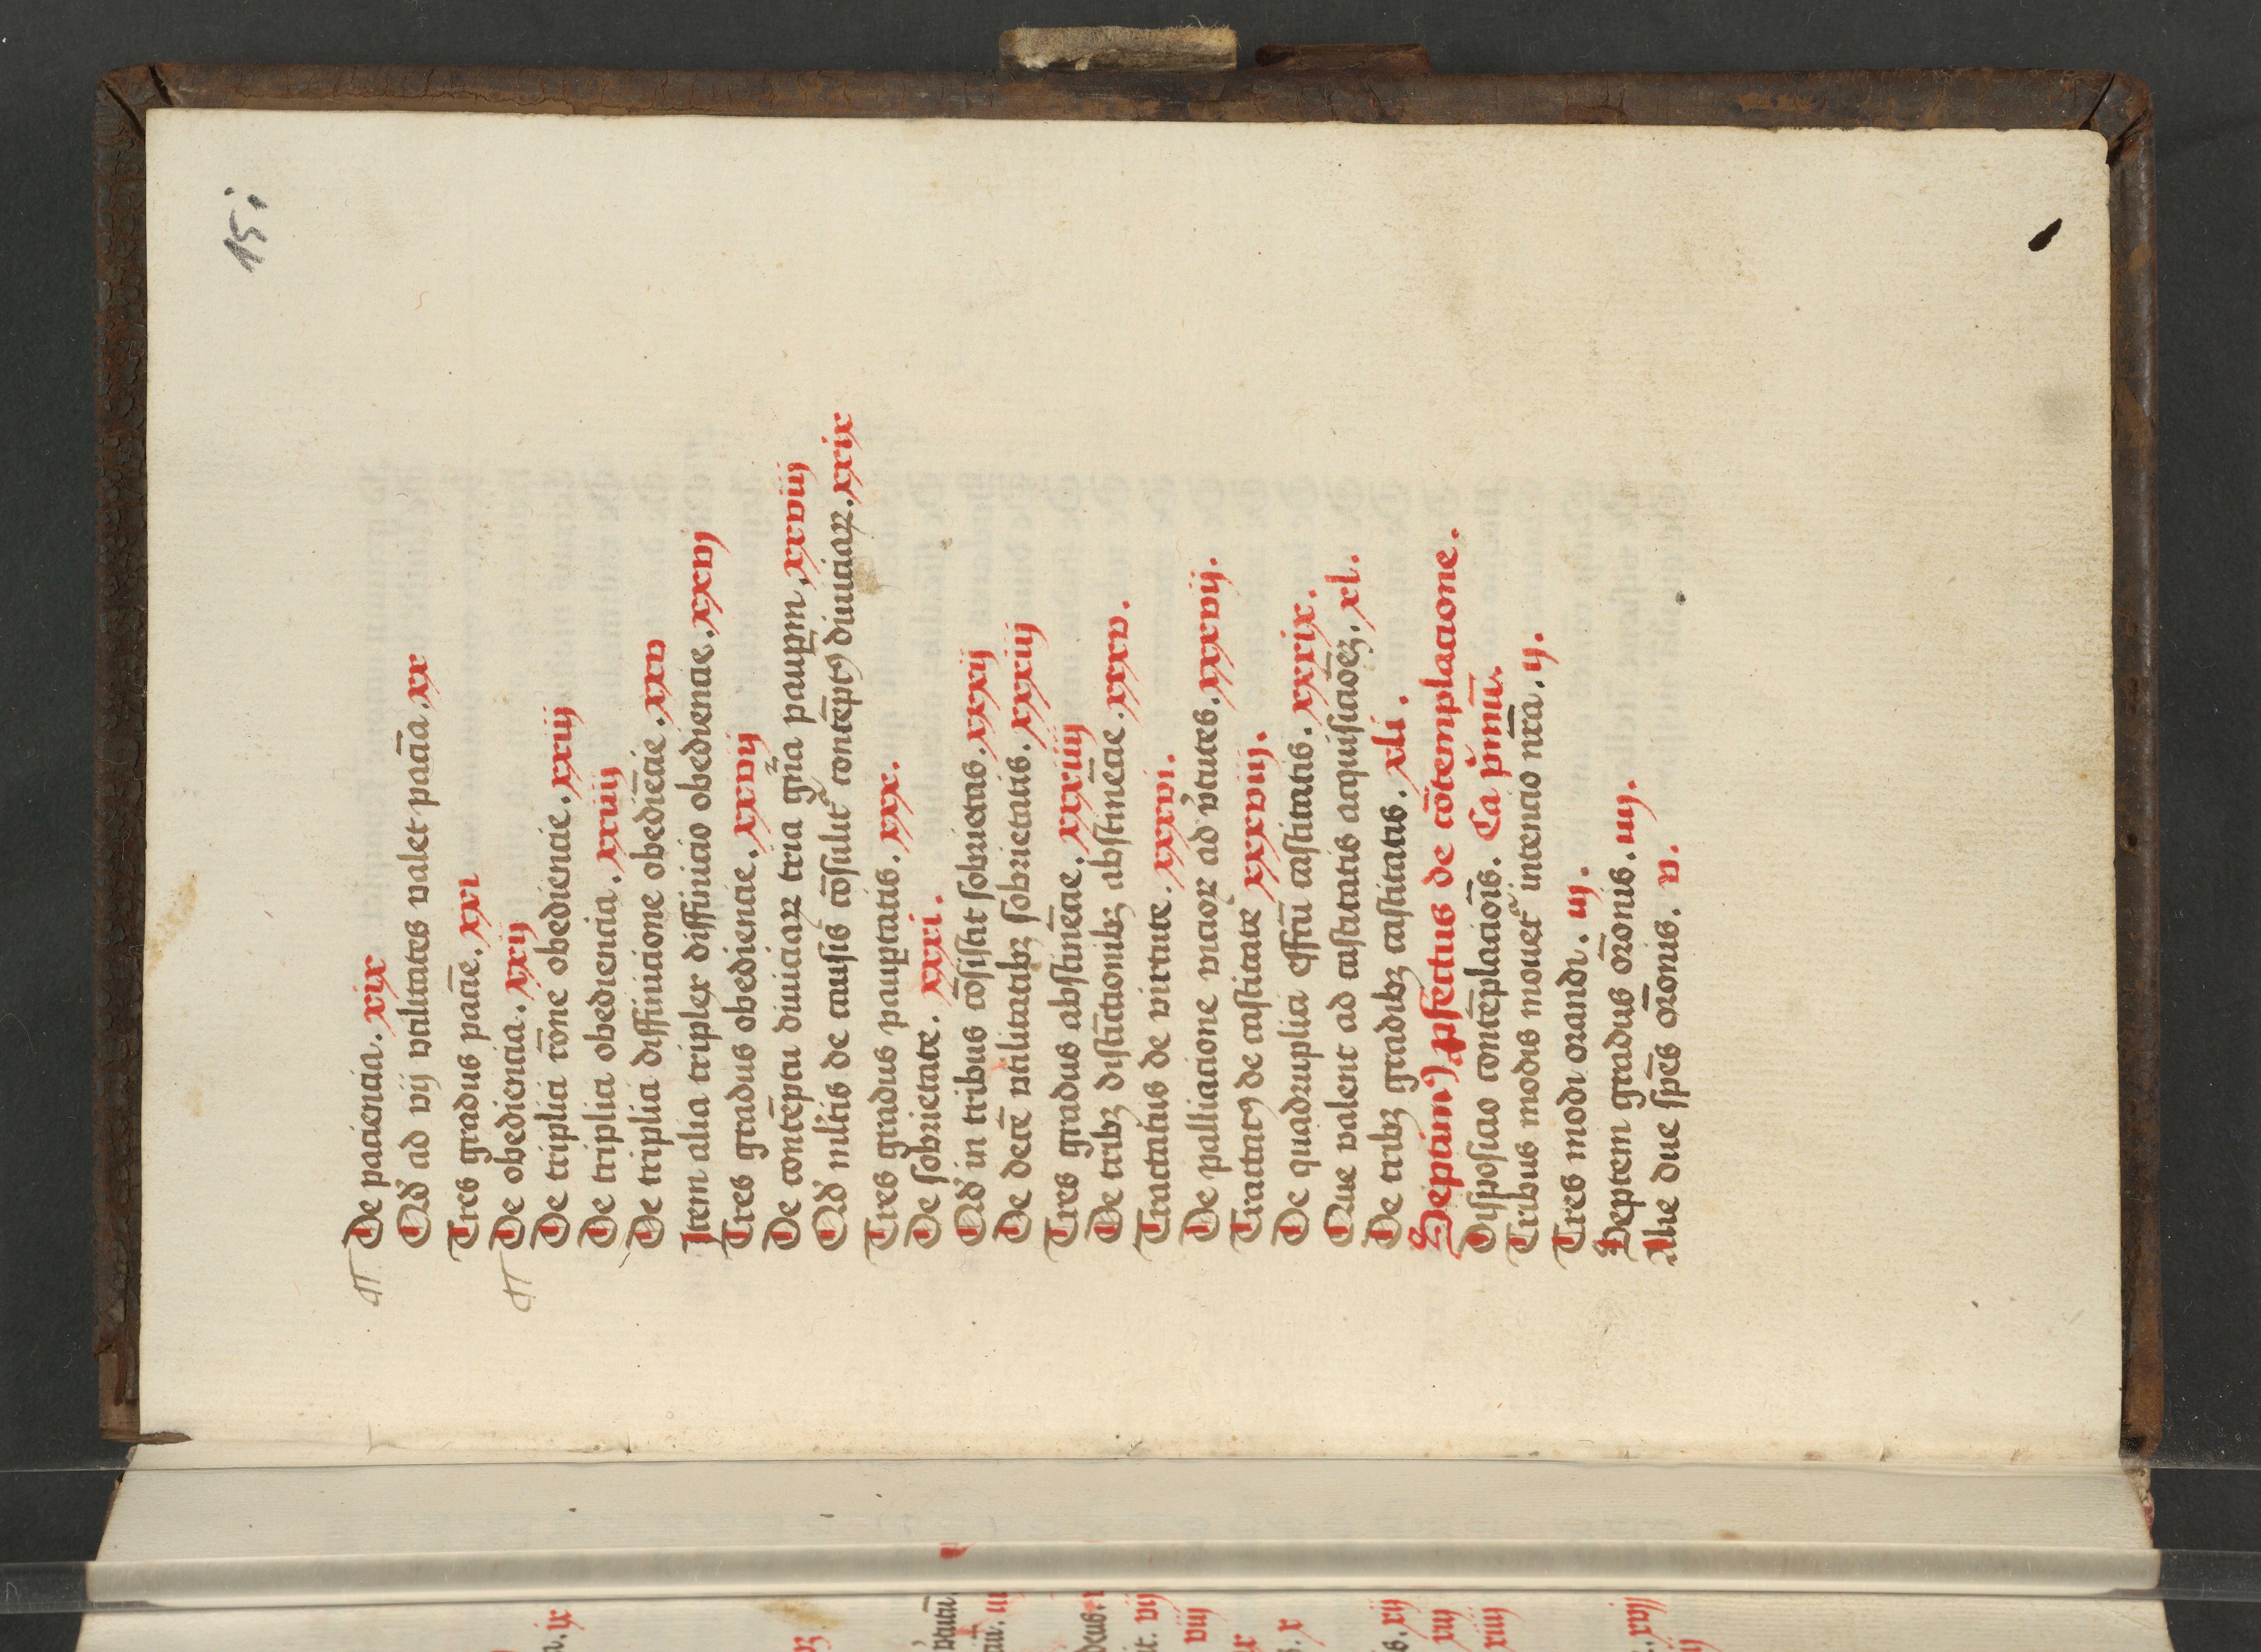 151
De paciencia. xix
Qd' ad vij vtilitates valet pacīa. xx
Tres gradus pacīe. xxi
De obediencia. xxij
De triplici rōne obediencie. xxiij
De triplici obediencia. xxiiij
De triplici diffinicione obediēcie. xxv
Item alia triplex diffinicio obediencie. xxvj
Tres gradus obediencie. xxvij
De contēptu diuiciaꝝ tria gn̄a pauꝑm. xxviij
Qd' ml'tis de causis cōsulit' contēptꝰ diuiciaꝝ. xxix
Tres gradus pauꝑtatis. xxx.
De sobrietate. xxxi.
Qd' in tribus cōsistit sobrietas. xxxij
De decē vtilitatibꝫ sobrietatis. xxxiij
Tres gradus abstinēcie. xxxiiij
De tribꝫ distīctionibꝫ abstinēcie. xxxv.
Tractatus de virtute. xxxvi.
De palliacione vicioꝝ ad v'tutes. xxxvij.
Tractatꝰ de castitate xxxviij.
De quadruplici effcū castitatis. xxxix.
Que valent ad castitatis acquisicōeꝫ. xl.
De tribꝫ gradibꝫ castitatis. xli.
Septimꝰ ꝓfectus de cōtemplacione.
Disposicio contēplaciōis. Ca p'mū.
Tribus modis mouet' intencio nr̄a. ij.
Tres modi orandi. iij.
Septem gradus or̄onis. iiij.
Alie due sp̄es or̄onis. v.